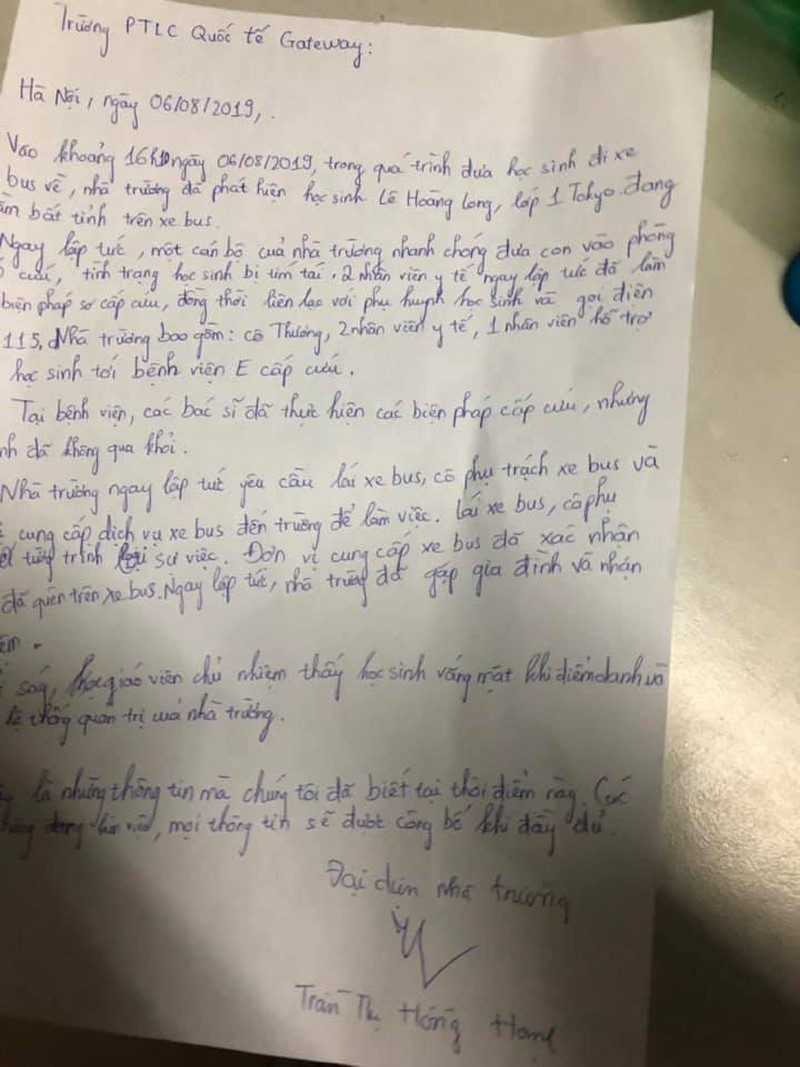 Trường PTLC Quốc tế Gateway:
Hà Nội, ngày 06/08/2019,.
Vào khoảng 16h10 ngày 06/08/2019, trong quá trình đưa học sinh đi xe
bus về, nhà trường đã phát hiện học sinh Lê Hoàng Long, lớp 1 Tokyo đang
bất tỉnh trên xe bus.
Ngay lập tức, một cán bộ của nhà trường nhanh chóng đưa con vào phòng
cứu, tình trạng học sinh bị tím tái. 2 nhân viên y tế ngay lập tức đã làm
biện pháp sơ cấp cứu, đồng thời liên lạc với phụ huynh học sinh và gọi điện
115. Nhà trường bao gồm: cô Thương, 2 nhân viên y tế, 1 nhân viên hỗ trợ
học sinh tới bệnh viện E cấp cứu.
Tại bệnh viện, các bác sĩ đã thực hiện các biện pháp cấp cứu, nhưng
đã không qua khỏi.
Nhà trường ngay lập tức yêu cầu lái xe bus, cô phụ trách xe bus và
cung cấp dịch vụ xe bus đến trường để làm việc. Lái xe bus, cô phụ
tường trình lại sự việc. Đơn vị cung cấp xe bus đã xác nhận
đã quên trên xe bus. Ngay lập tức, nhà trường đã gặp gia đình và nhận
sáng, giáo viên chủ nhiệm thấy học sinh vắng mặt khi điểm danh và
thống quản trị của nhà trường.
là những thông tin mà chúng tôi đã biết tại thời điểm này. Các
mọi thông tin sẽ được công bố khi đầy đủ.
Đại diện nhà trường
Trần Thị Hồng